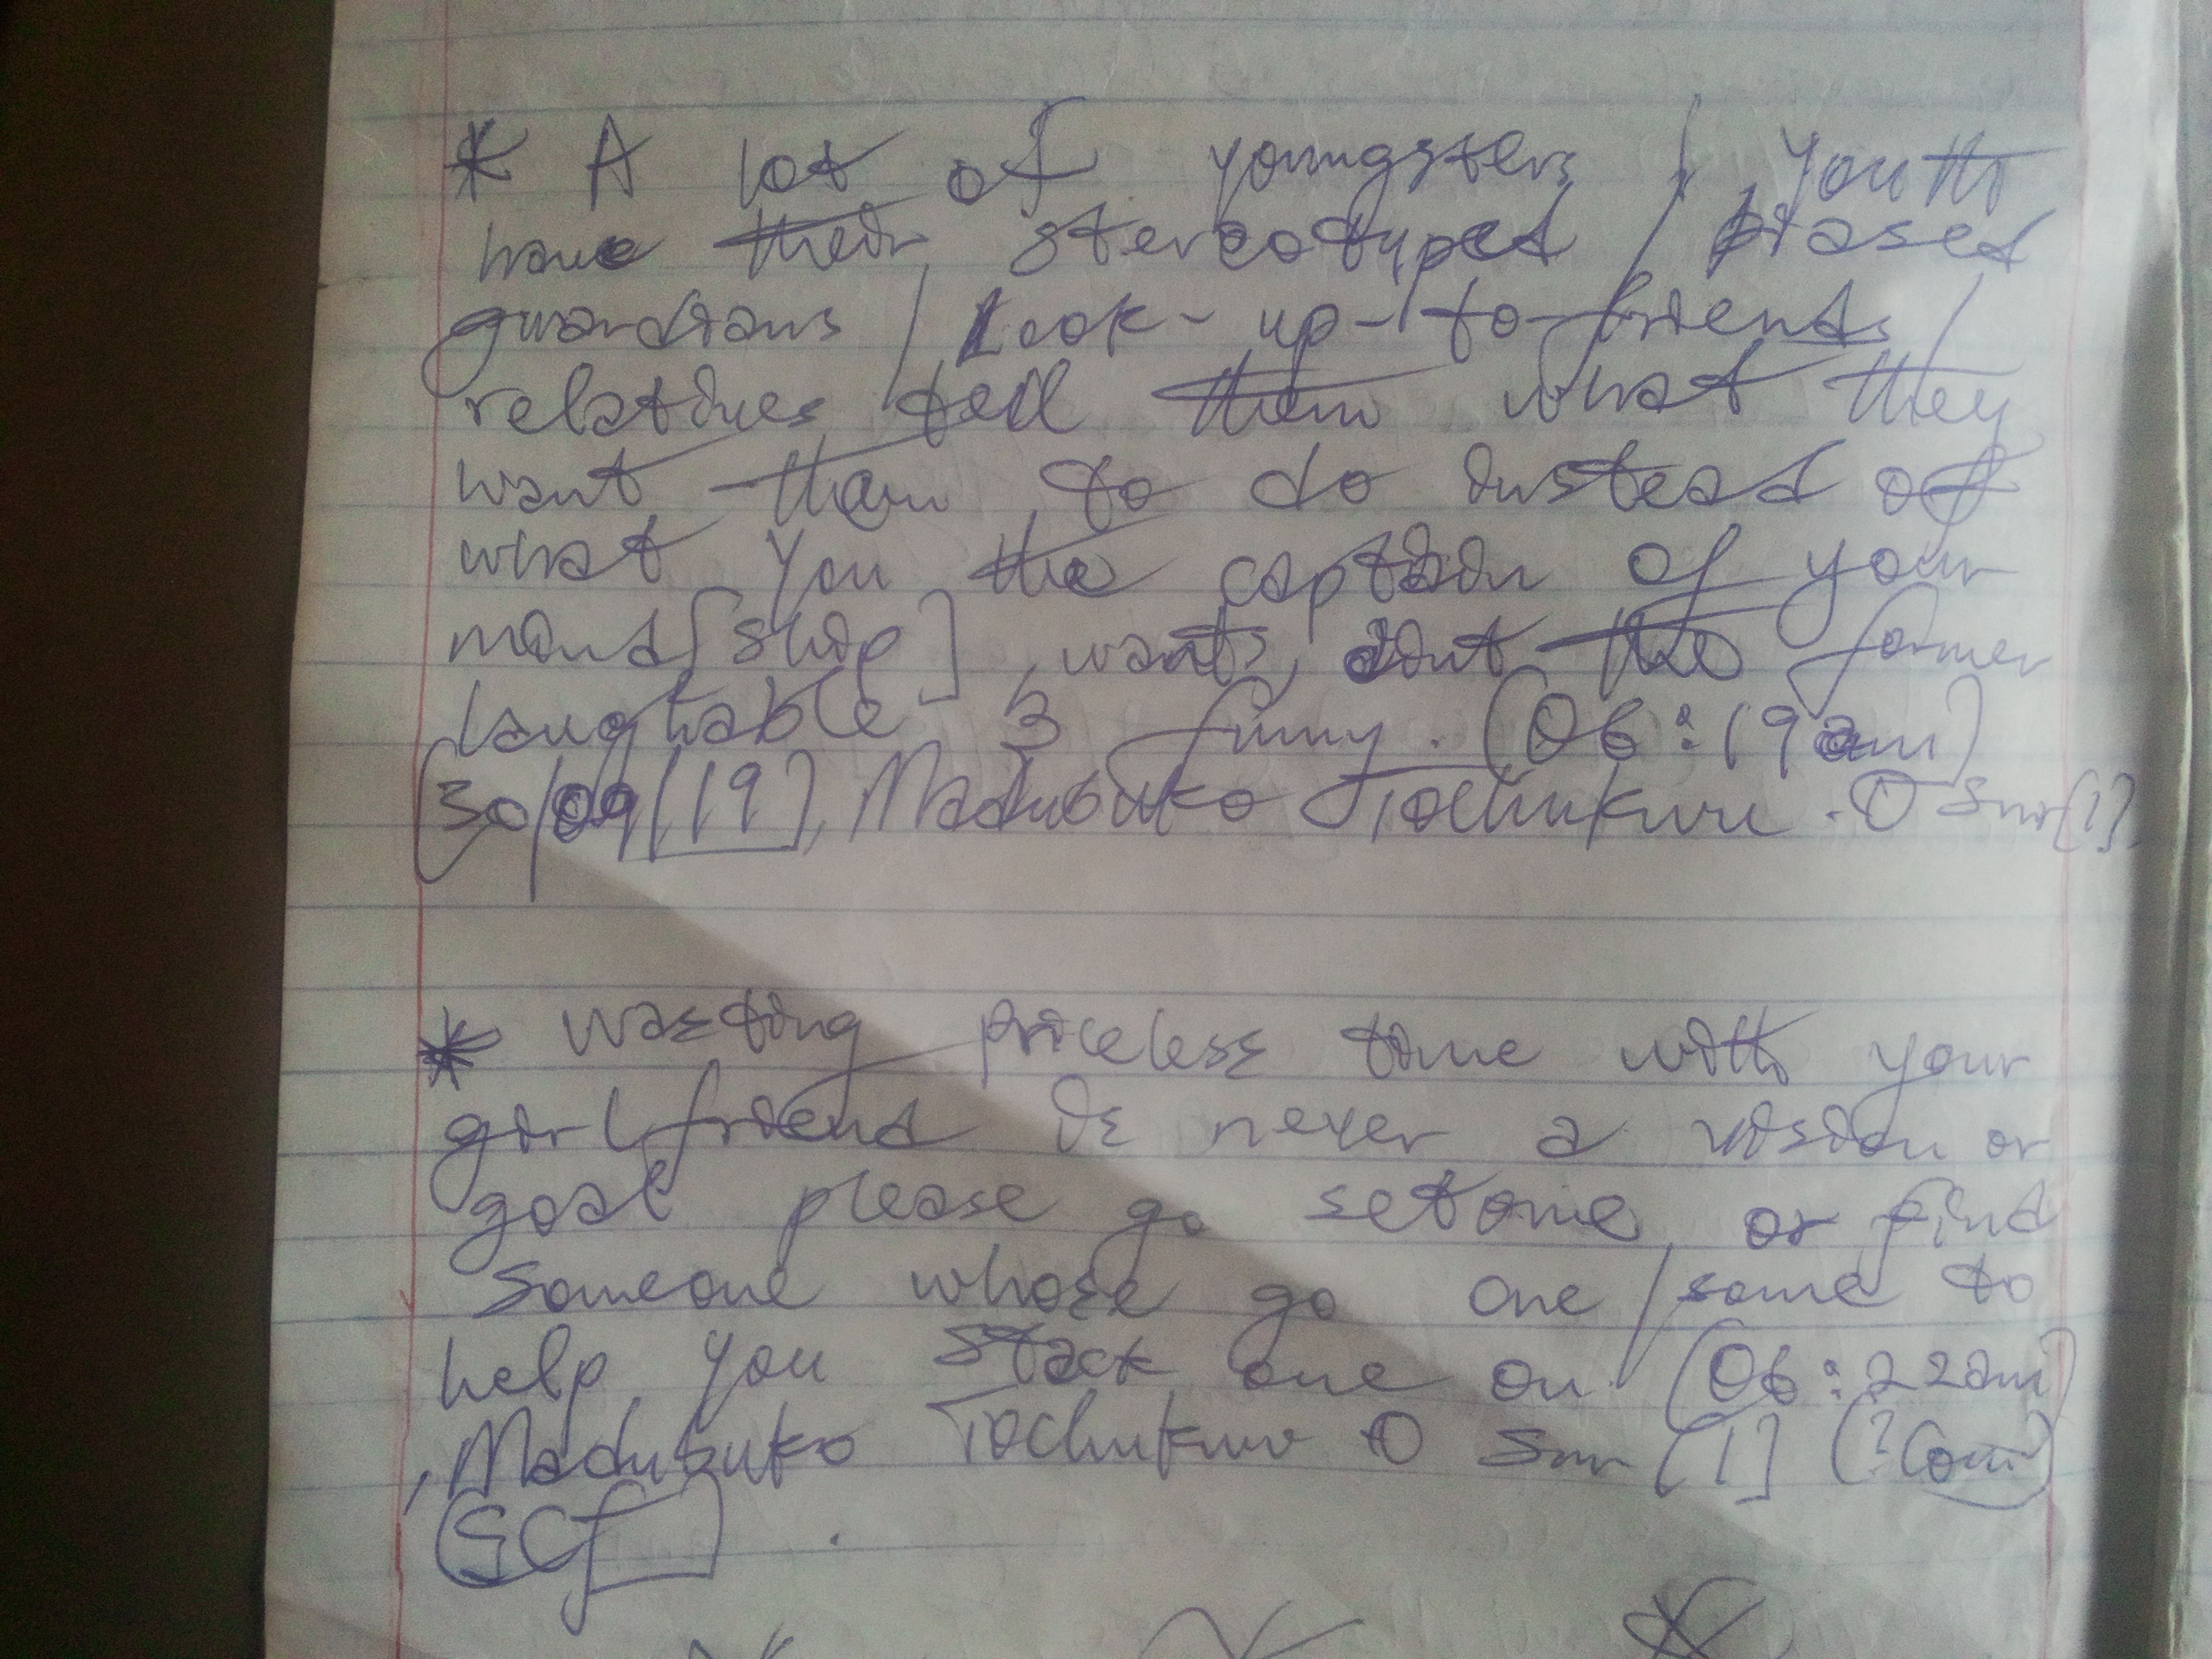 * A lot of youngsters / youth
have their stereotyped / biased
guardians / Look-up-to-friends /
relatives tell them what they
want them to do instead of
what you the captain of your
mind [ship], wants, aint the former
laughable & funny. (06:19am)
(30/09/[19], Madubuko Tochukwu .O Snr[1].
* Wasting priceless time with your
girlfriend is never a vision or
goal please go set one, or find
Someone whose go one / some to
help you stack one on (06:22am)
, Madubuko Tochukwu O Snr [1]